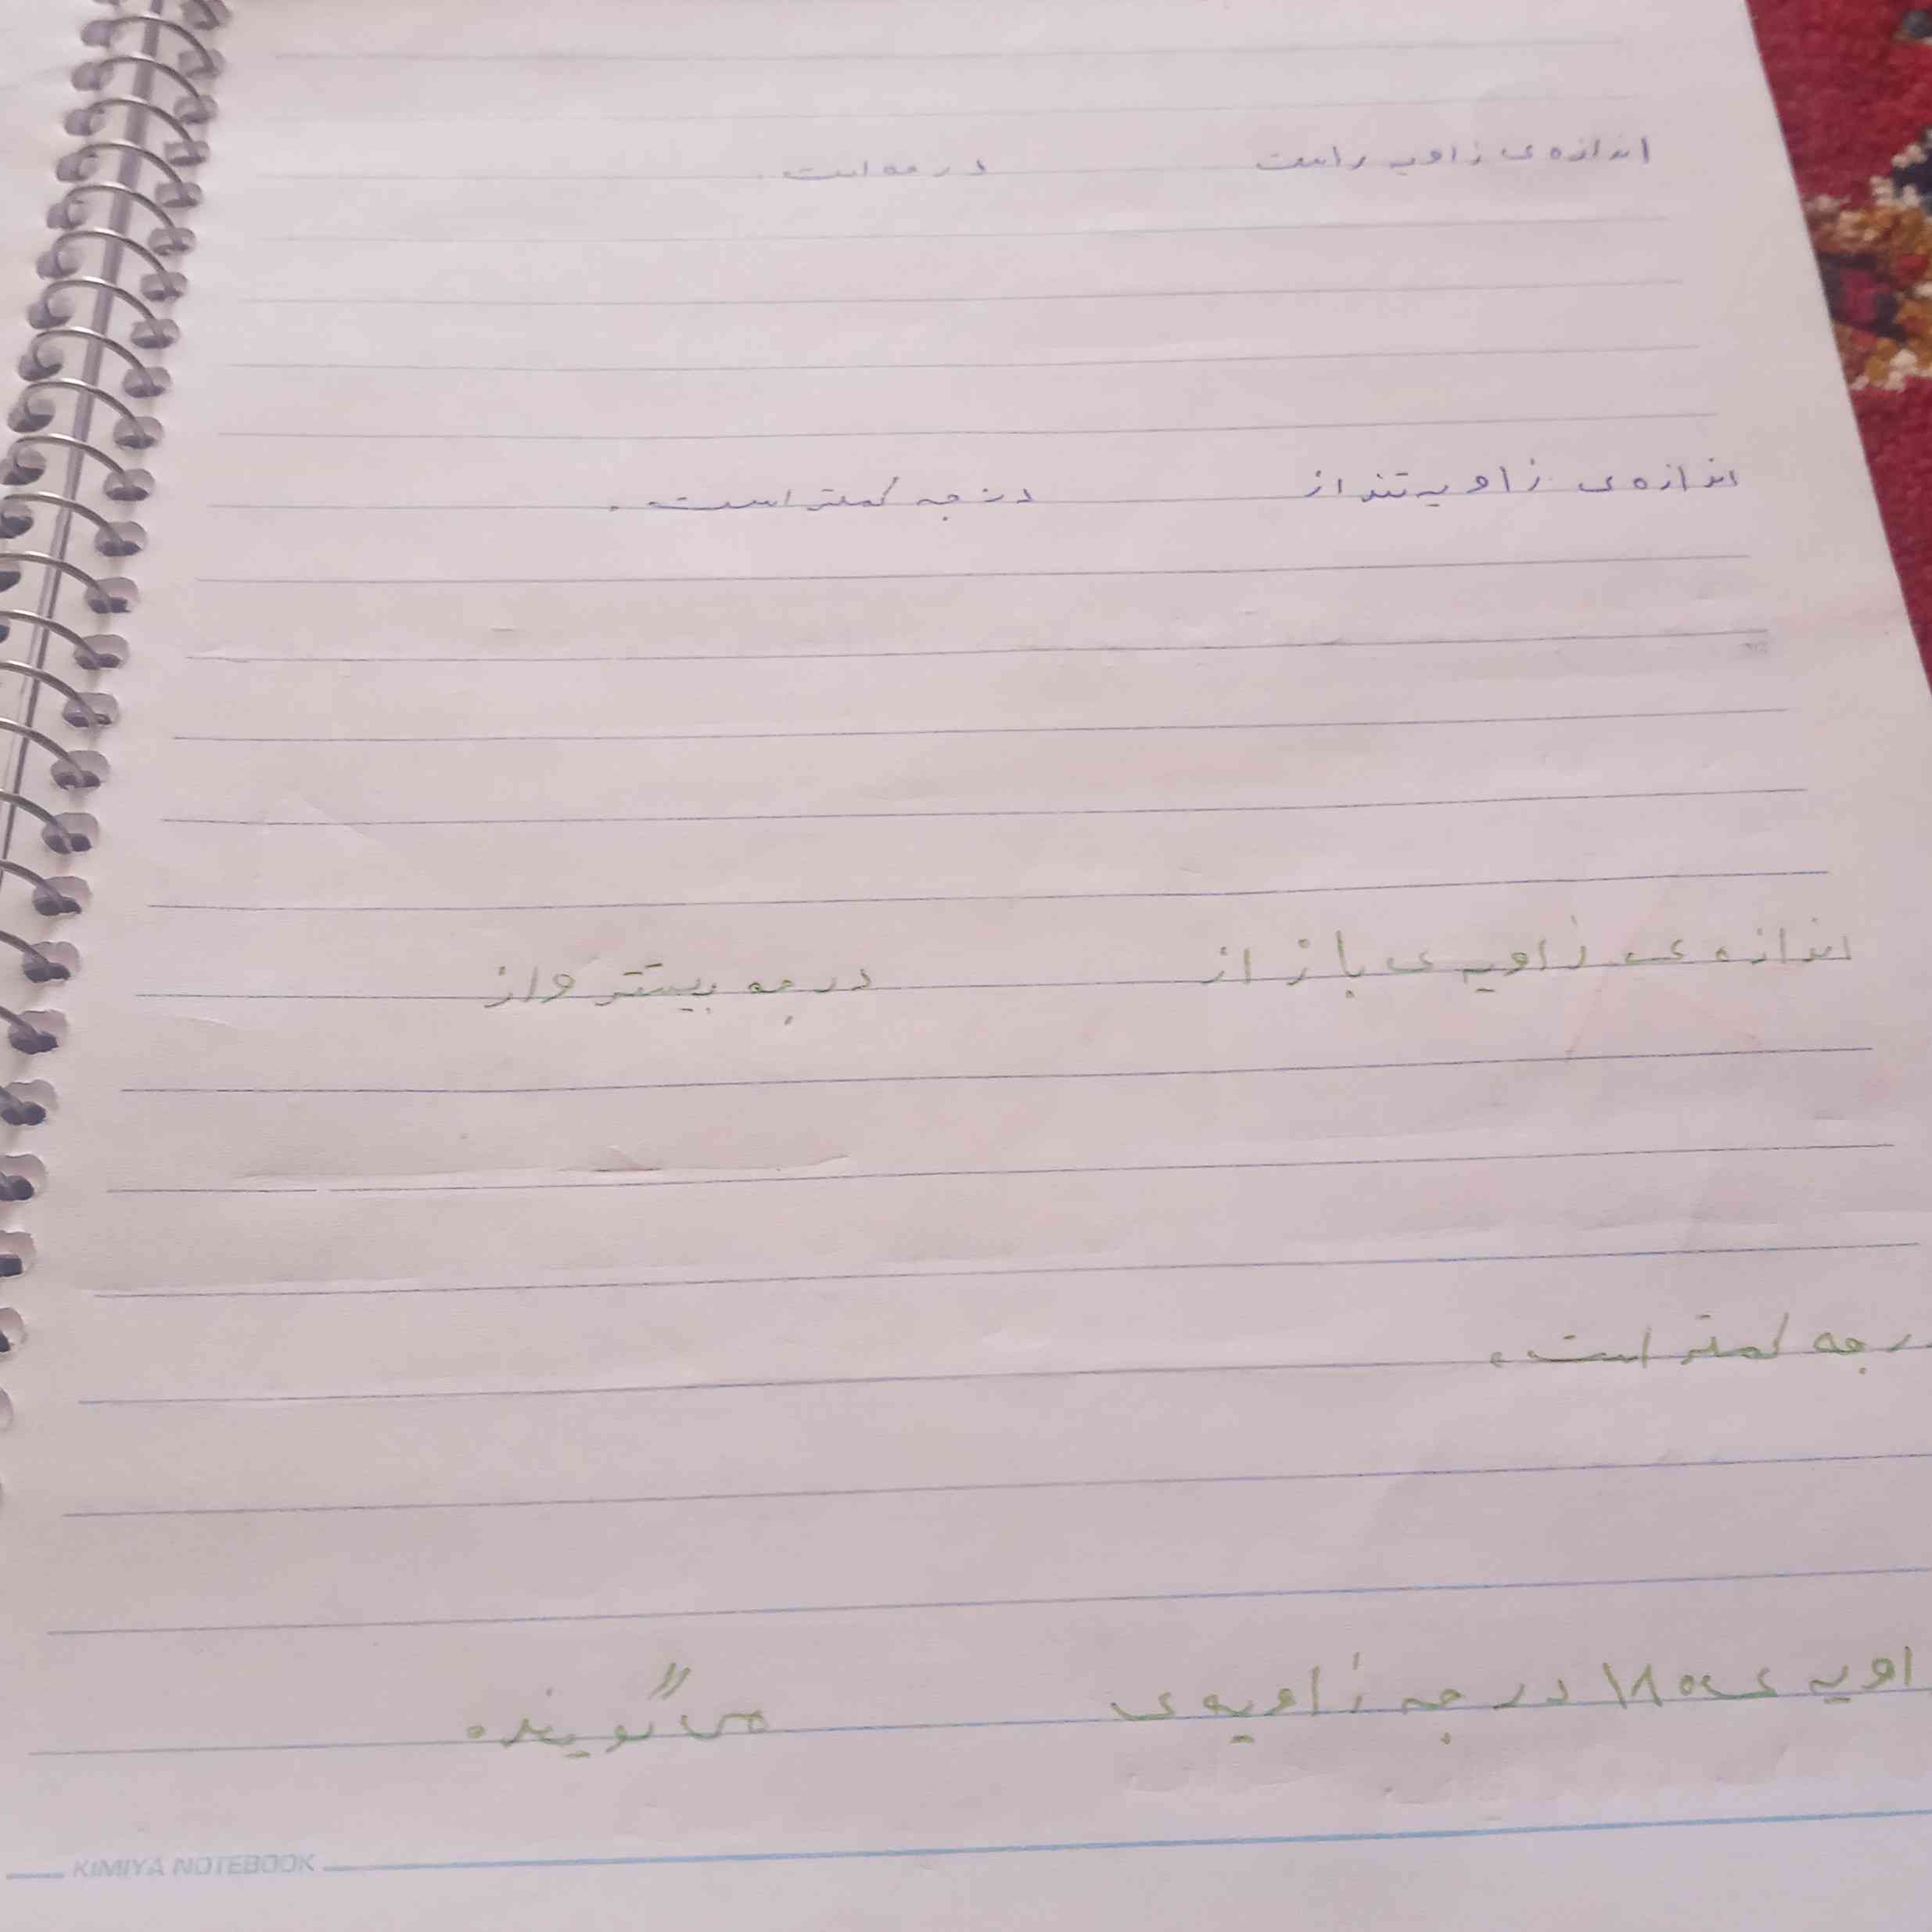 اندازه ی زاویه راست درجه است .
اندازه ی زاویه تند از درجه کمتر است .
اندازه ی زاویه ی باز از درجه بیشتر و از
رجه کمتر است .
اویه ی ۱۸۰ درجه زاویه ی می گویند .
KIMIYA NOTEBOOK